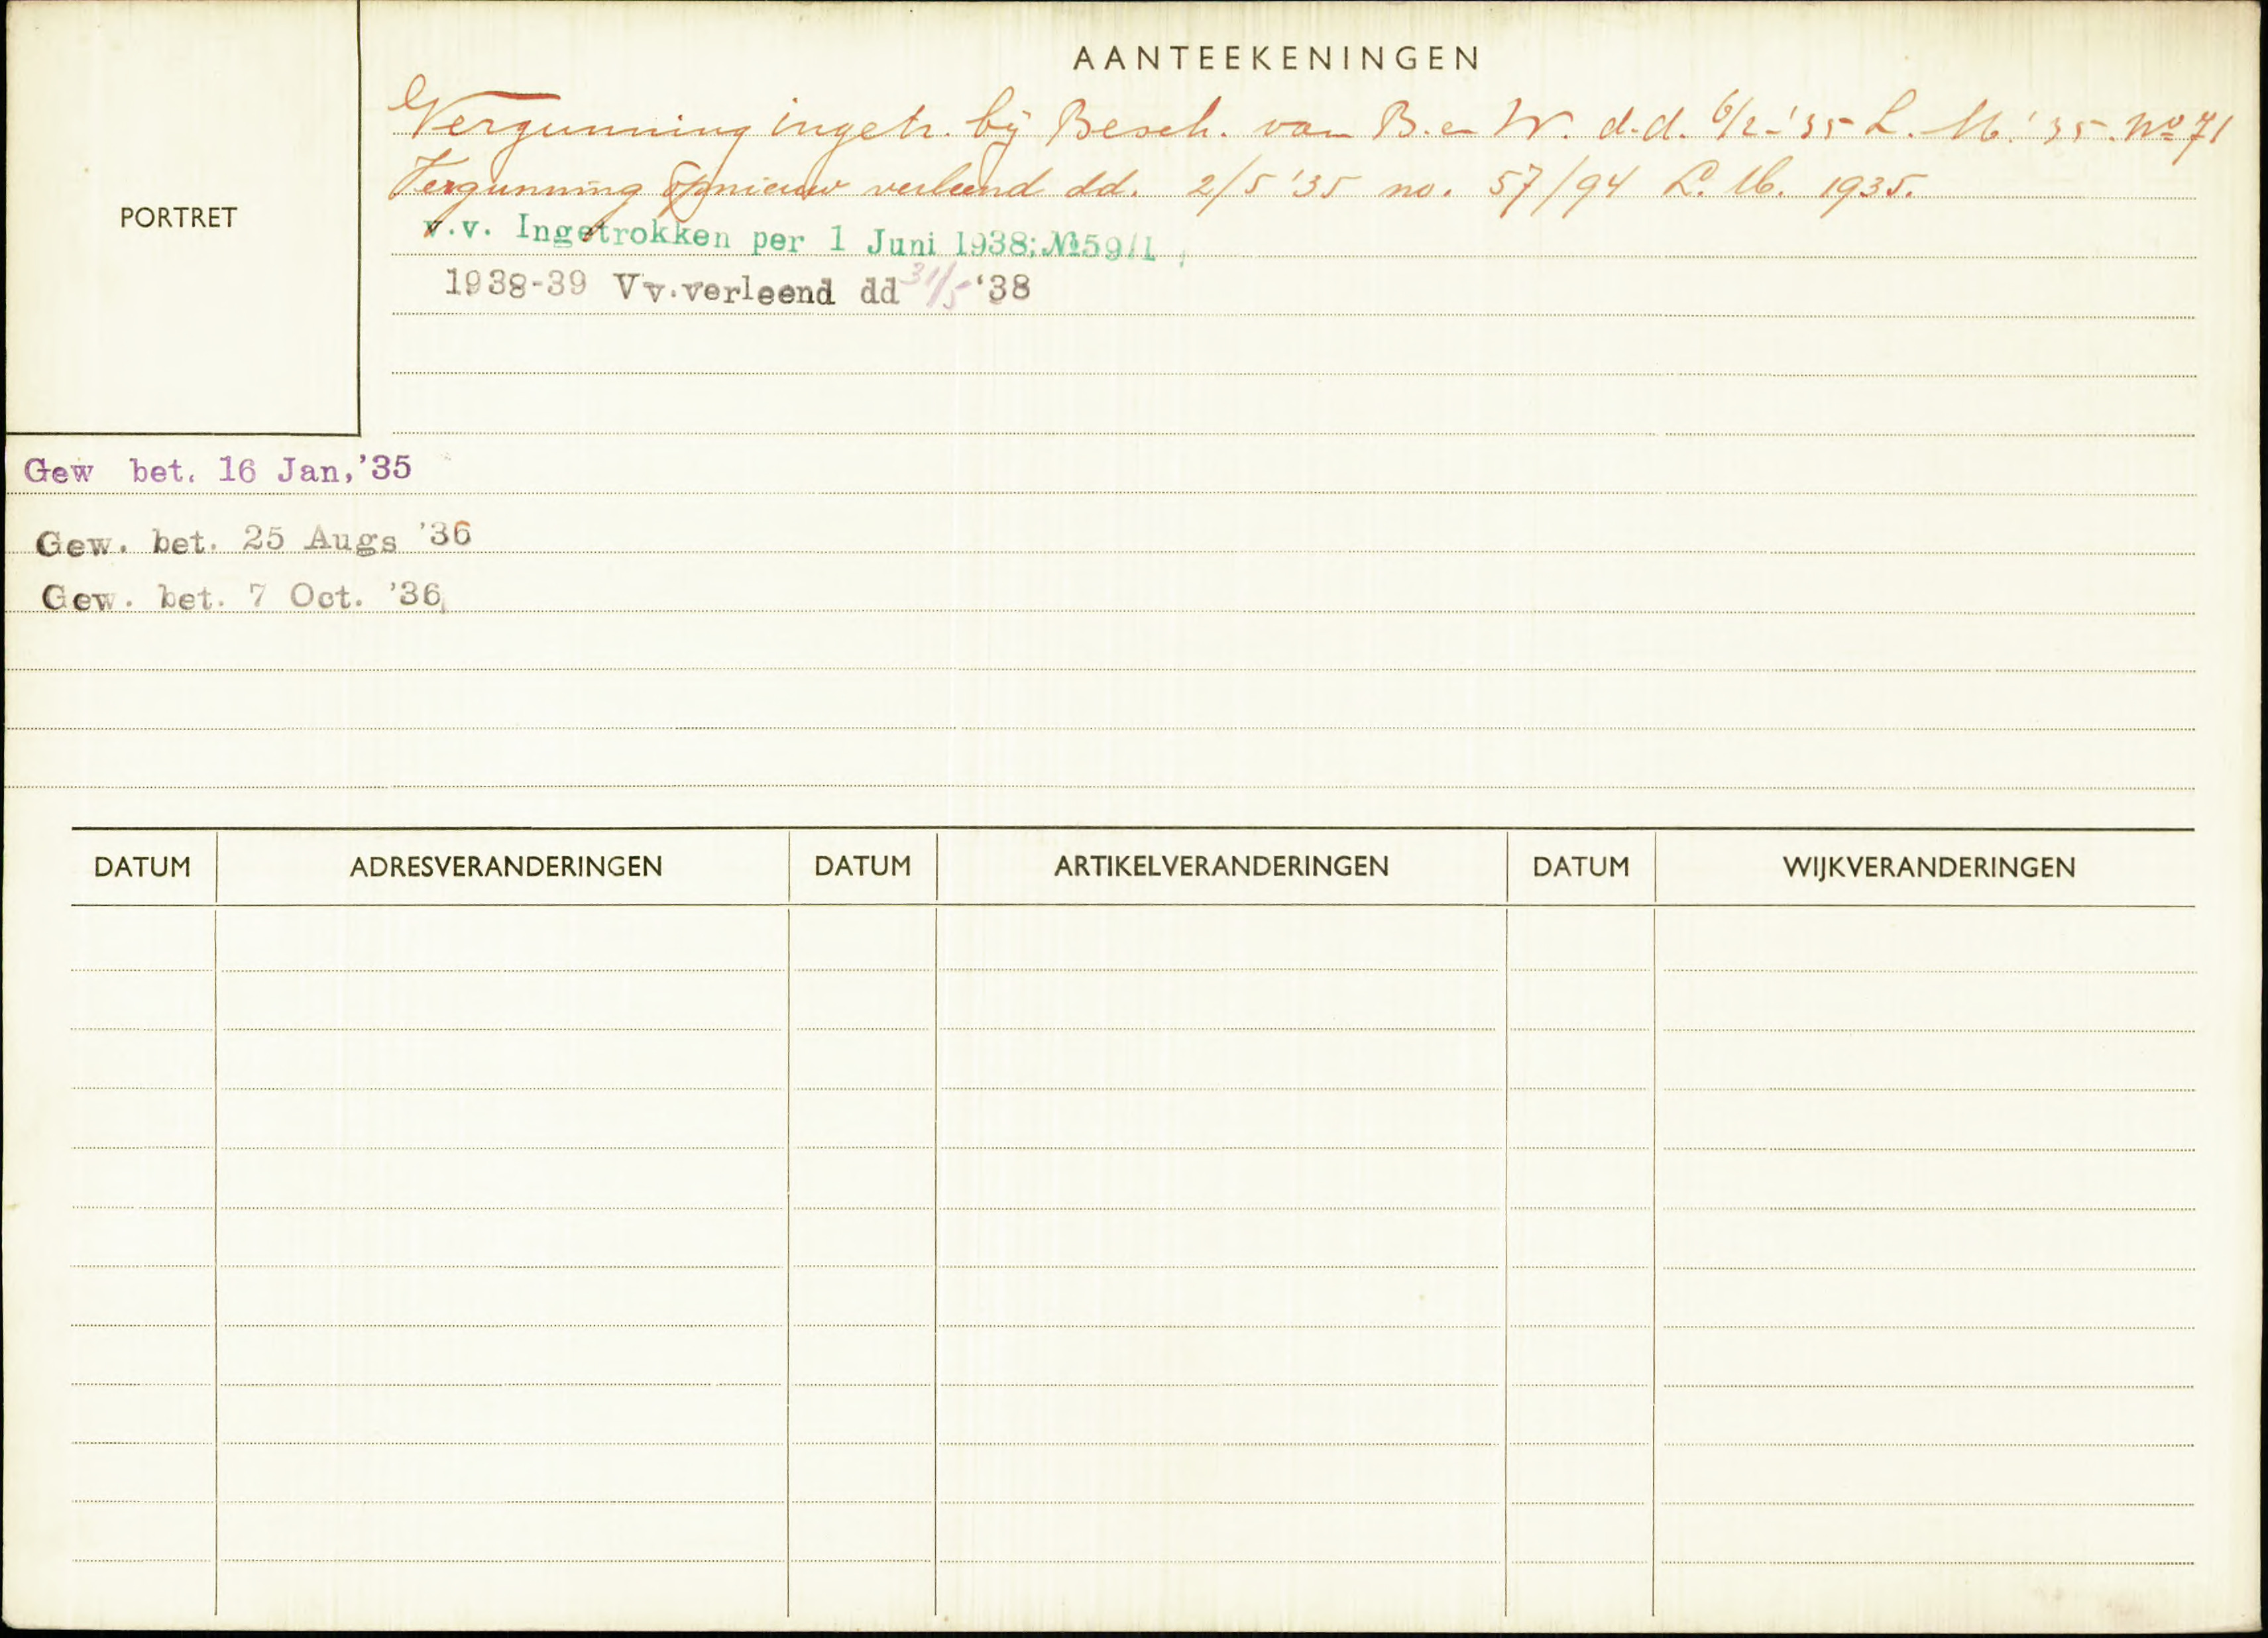 AANTEEKENINGEN
Vergunning ingetr. bij Besch. van B. en W. d.d. 6/2-'35 L.M.'35. No 71
Vergunning opnieuw verleend dd. 2/5 '35 no. 57/94 L.M. 1935.
PORTRET
v.v. Ingetrokken per 1 Juni 1938; № 59/1
1938-39 Vv.verleend dd 31/5 '38
Gew bet. 16 Jan. '35
Gew. bet. 25 Augs '36
Gew. bet. 7 Oct. '36
DATUM ADRESVERANDERINGEN DATUM ARTIKELVERANDERINGEN DATUM WIJKVERANDERINGEN